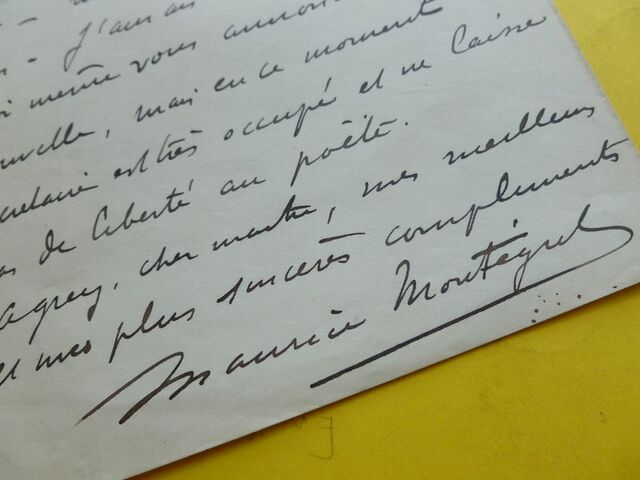 J'aurais
même vous annoncer
nouvelle, mais en ce moment
secrétaire est très occupé et ne laisse
pas de liberté au poète.
Agréez, cher maître, mes meilleurs
et mes plus sincères compliments
Maurice Montégut